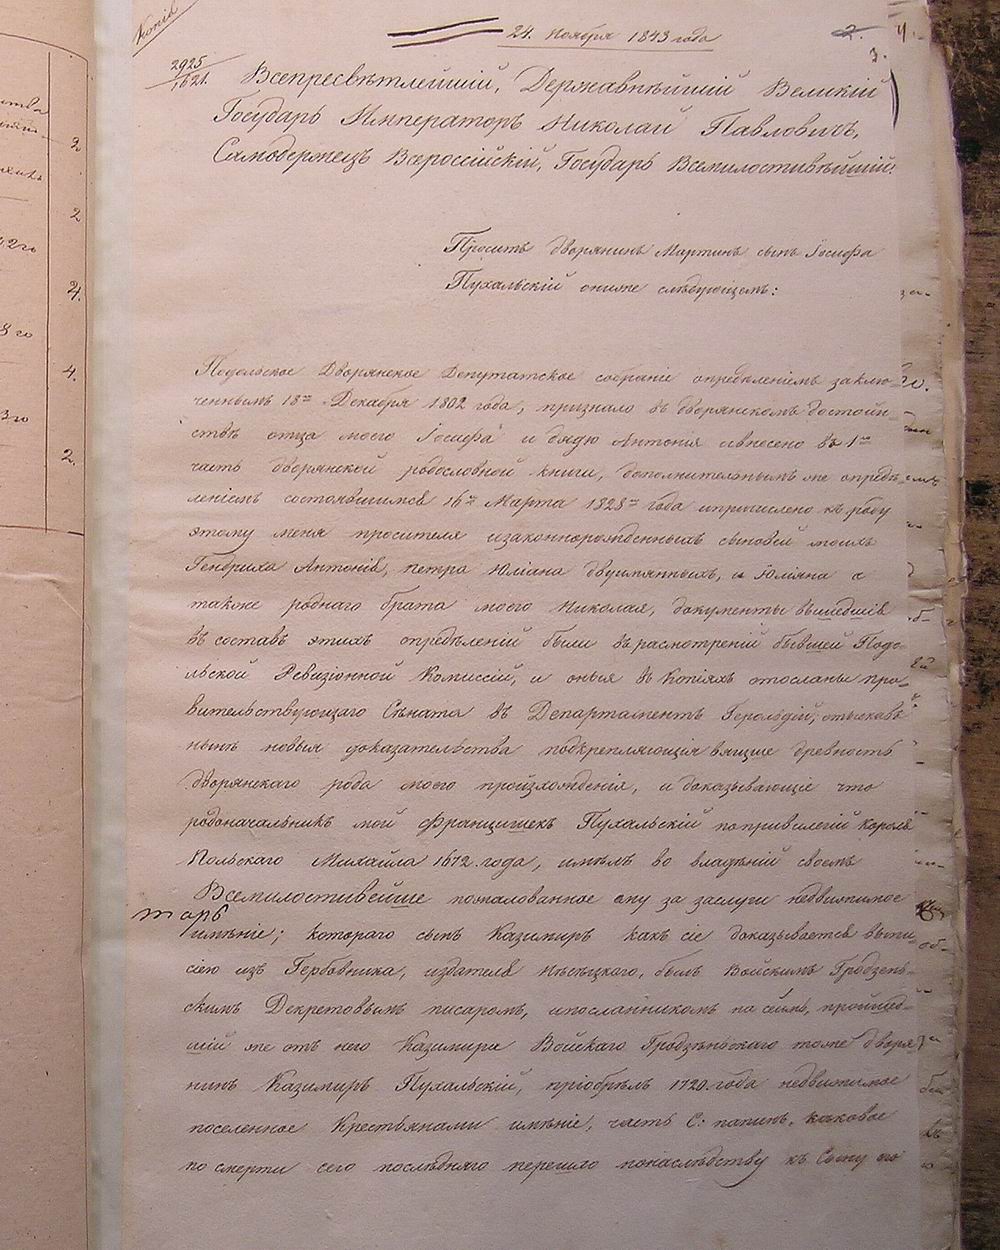 Копія
24. Ноября 1843 года
2. 4.
3.
2925
1621.
Всепресвѣтлейшій, Державнѣйшій Великій
Государь Императоръ Николай Павловичъ,
Самодержецъ Всероссійскій, Государь Всемилостивѣйшій.
Проситъ дворянинъ Мартинъ сынъ Іосифа
Пухальскій ониже слѣдующемъ:
Подольское Дворянское Депутатское собраніе опредѣленіемъ заклю-
ченнымъ 18го Декабря 1802 года, признало въ дворянскомъ достоин-
ствѣ отца моего Іосифа и дядю Антонія ивнесено въ 1ю
часть дворянской родословной книги, дополнительнымъ же опредѣ-
леніемъ состоявшимся 16го Марта 1828го года ипричислено къ роду
этому меня просителя изаконнорожденныхъ сыновей моихъ
Генриха Антонія, петра Юліана двуимянныхъ, и Юліяна а
также роднаго брата моего Николая, документы вышедшія
въ составъ этихъ опредѣленій были въ расмотреніи бывшей Подо-
льской Ревизіонной Комиссій, и оныя въ Копіяхъ отосланы пра-
вительствующаго Сѣната въ Департаментъ Герольдій; отыскавъ
нынѣ новыя доказательства подкрепляющія вящше древность
дворянскаго рода моего произхожденія, и доказывающіе что
родоначальникъ мой Францишекъ Пухальскій попривилегій Короля
Польскаго Михайла 1672. года, имѣлъ во владѣній своемъ
Всемилостивейше пожалованное ему за заслуги недвижимое
имѣніе; котораго сынъ Казимиръ какъ сіе доказывается выпи-
сію изъ Гербовника, издателя Нѣсѣцкаго, былъ Войскимъ Гродзен-
скимъ Декретовымъ писаромъ, ипосланникомъ на сеймѣ, пройшед-
шій же отъ него Казимира Войскаго Гродзѣньскаго тоже дворя-
нинъ Казимиръ Пухальскій, пріобрѣлъ 1720. года недвижимое
поселенное Крестьянами имѣніе, часть С: папинъ, каковое
по смерти сего послѣдняго перешло понаслѣдству къ Сыну его
2
2
4.
4.
2.